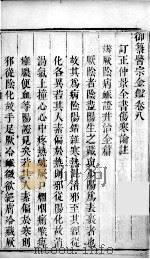 御纂醫宗金鑑卷八
訂正仲景全書傷寒論註
辨厥陰病脈證并治全篇
厥陰者陰盡陽生之藏與少陽為表裏者也
故其為病陰陽錯雜寒熱混淆邪至其經從
化各異若其人素偏於熱則邪從陽化故消
渴氣上撞心心中疼熱蚘厥口爛咽痛喉痺
癰膿便血等陽證見矣若其人素偏於寒則
邪從陰化故手足厥冷脈微欲絕膚冷臟厥